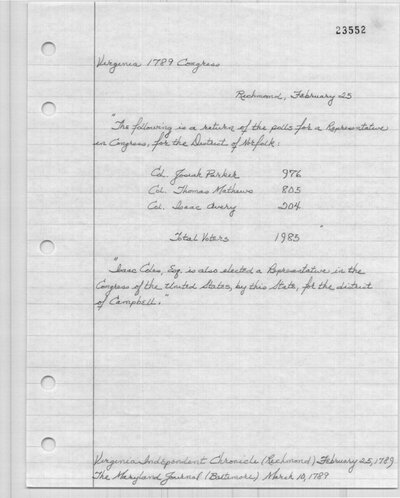 23552
Virginia 1789 Congress
Richmond, February 25
"The following is a return of the polls for a Representative
in Congress, for the District of Norfolk:
Col. Josiah Parker 976
Col. Thomas Mathews 805
Col. Isaac Avery 204
Total Voters 1985 "
"Isaac Coles, Esq. is also elected a Representative in the
Congress of the United States, by this State, for the district
of Campbell."
Virginia Independent Chronicle (Richmond) February 25, 1789
The Maryland Journal (Baltimore) March 10, 1789